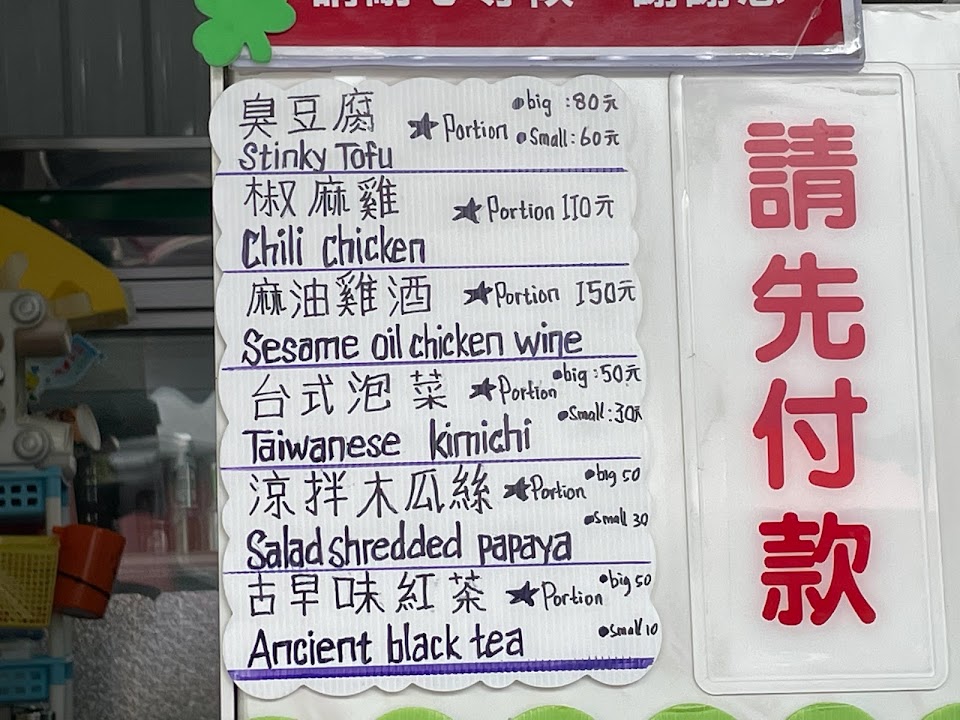 臭豆腐 ★Portion ●big :80元
●Small:60元
Stinky Tofu
椒麻雞 ★Portion 110元
Chili chicken
麻油雞酒 ★Portion 150元
Sesame oil chicken wine
台式泡菜 ★Portion ●big :50元
●Small:30元
Taiwanese kimichi
涼拌木瓜絲 ★Portion ●big 50
●Small 30
Salad shredded papaya
古早味紅茶 ★Portion ●big 50
●Small 10
Ancient black tea
請先付款